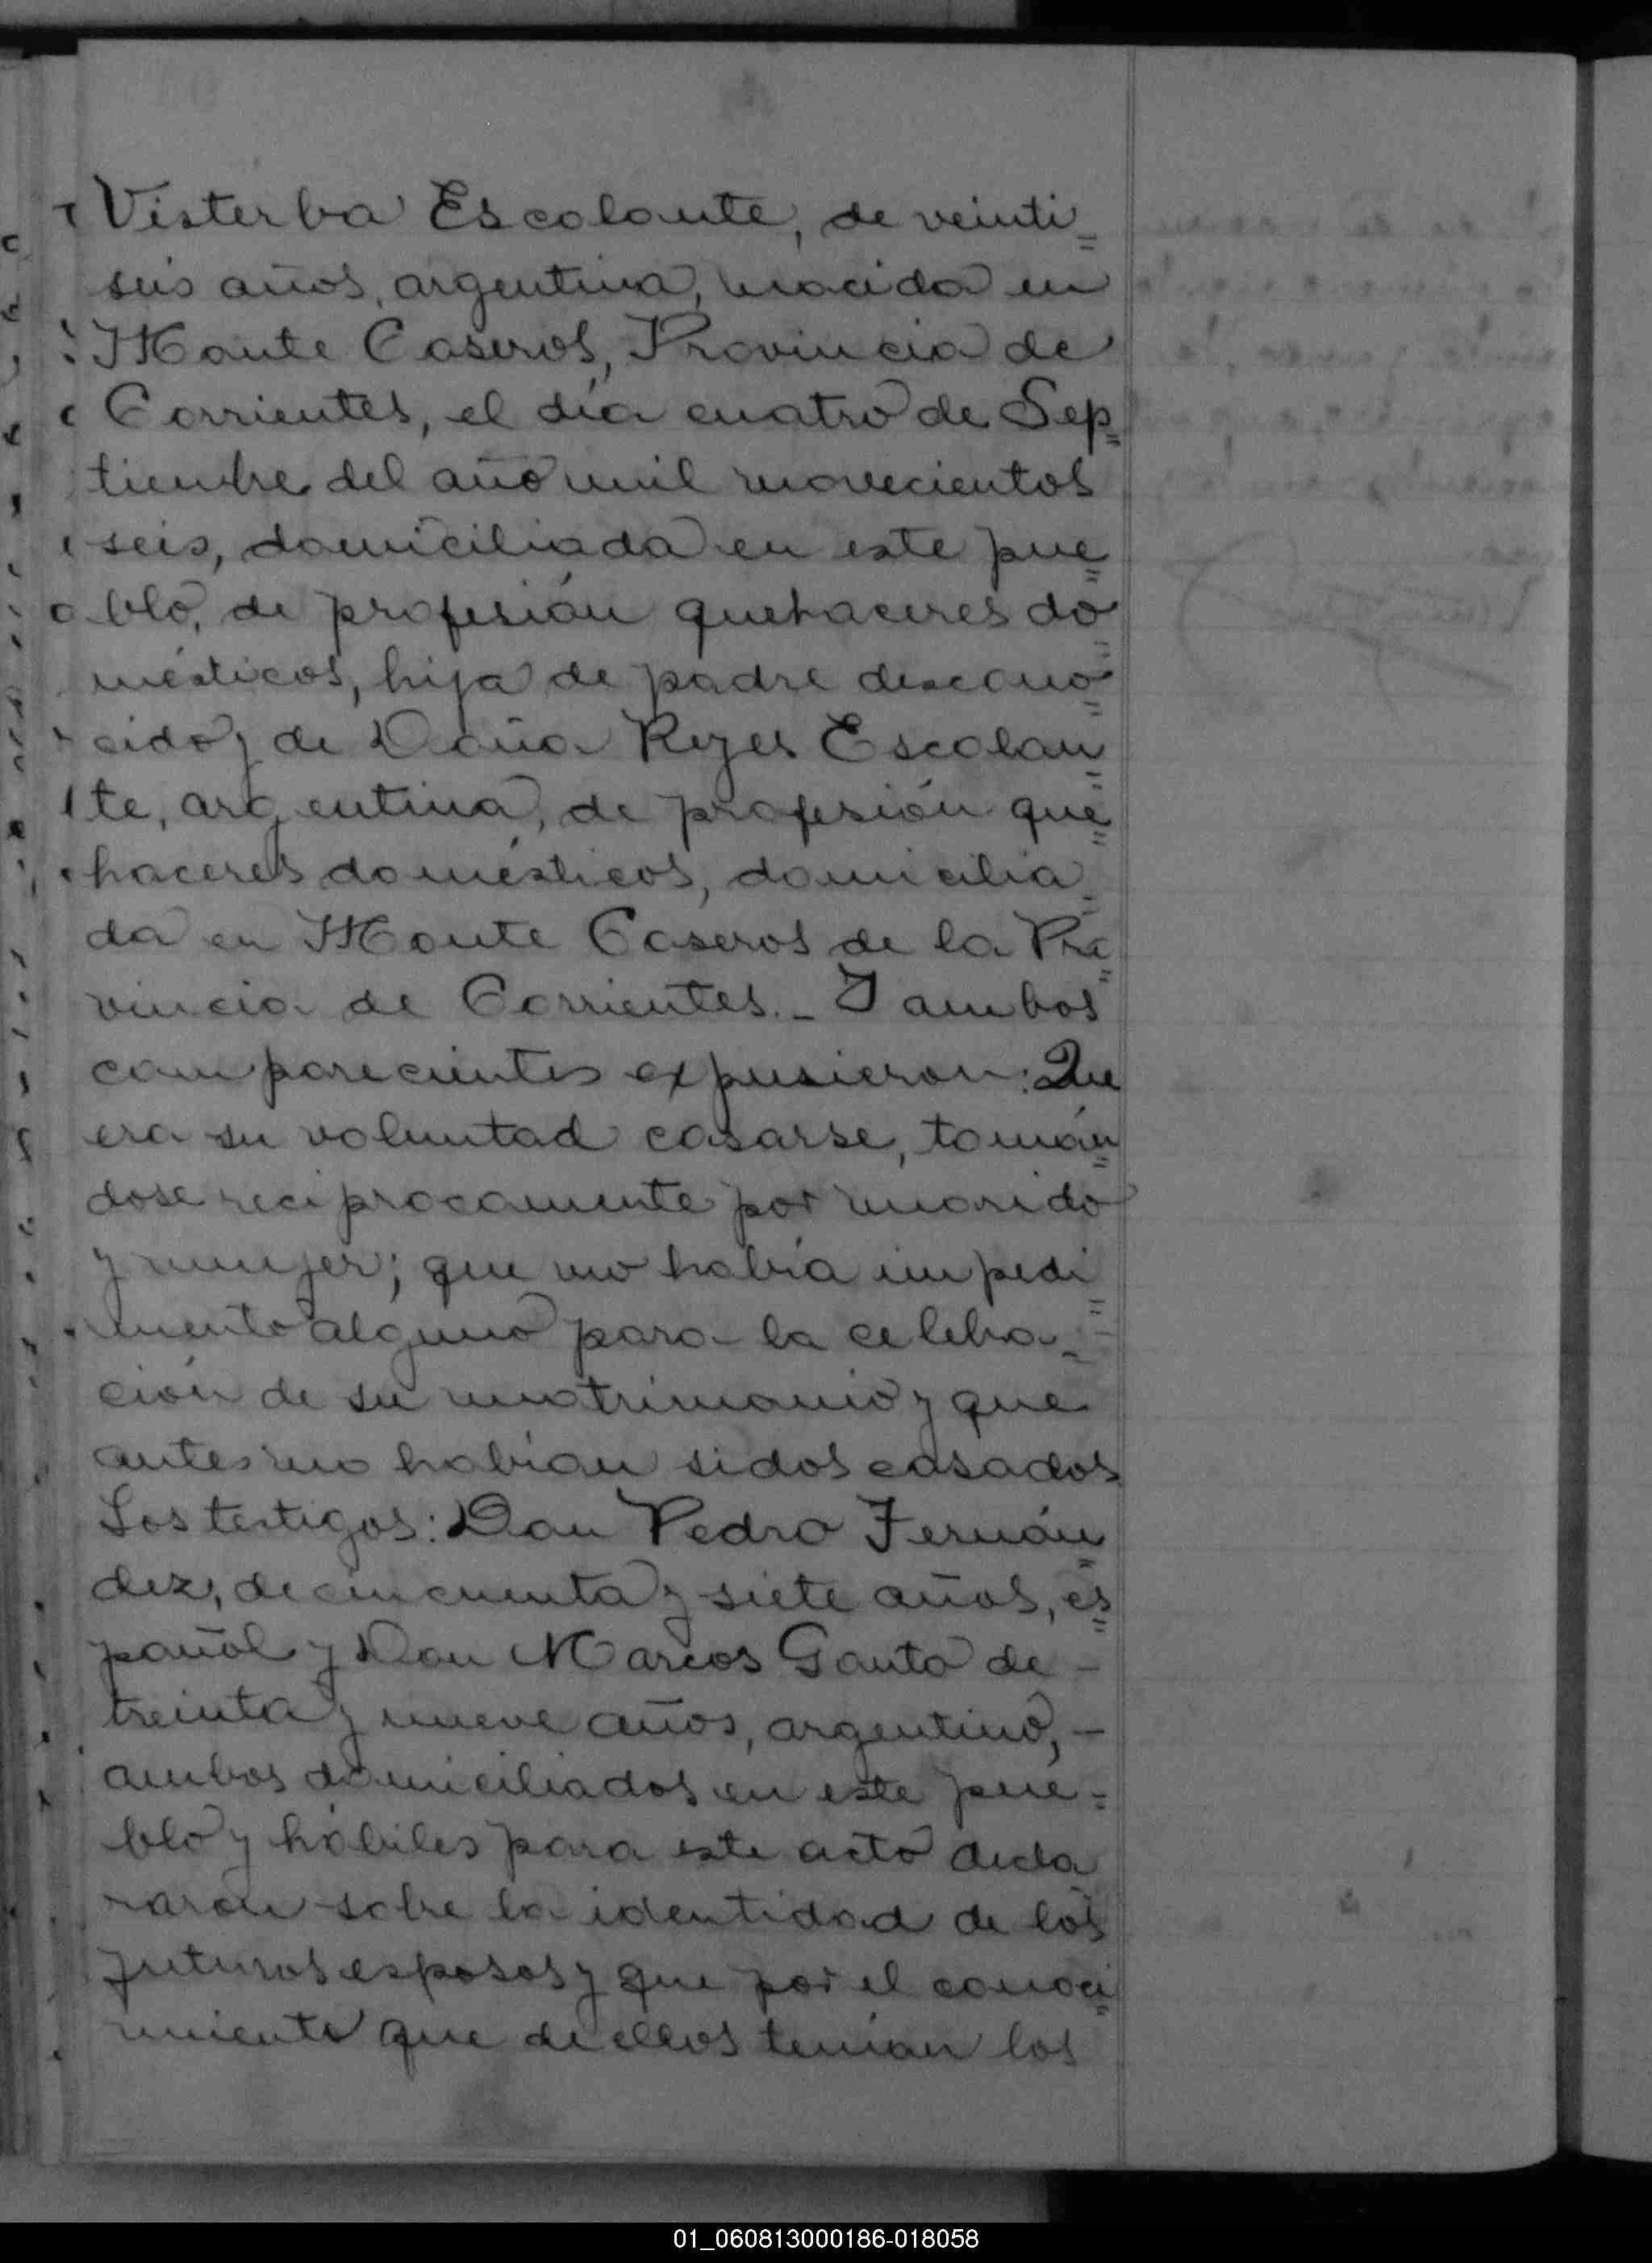 Visterba Escolante, de veinti=
seis años, argentina, nacida en
Monte Caseros, Provincia de
Corrientes, el día cuatro de Sep=
tiembre del año mil novecientos
seis, domiciliada en este pue=
blo, de profesión quehaceres do=
mésticos, hija de padre descono=
cido y de Doña Reyes Escolan=
te, argentina, de profesión que=
haceres domésticos, domicilia=
da en Monte Caseros de la Pro=
vincia de Corrientes._ Y ambos
comparecientes expusieron: Que
era su voluntad casarse, tomán=
dose reciprocamente por marido
y mujer; que no había impedi=
mento alguno para la celebra=
ción de su matrimonio y que
antes no habían sidos casados
Los testigos: Don Pedro Fernán=
dez, de cincuenta y siete años, es=
pañol y Don Marcos Gauto de -
treinta y nueve años, argentino, -
ambos domiciliados en este pue=
blo y hábiles para este acto decla=
raron sobre la identidad de los
futuros esposos y que por el conoci=
miento que de ellos tenían los
01_060813000186-018058